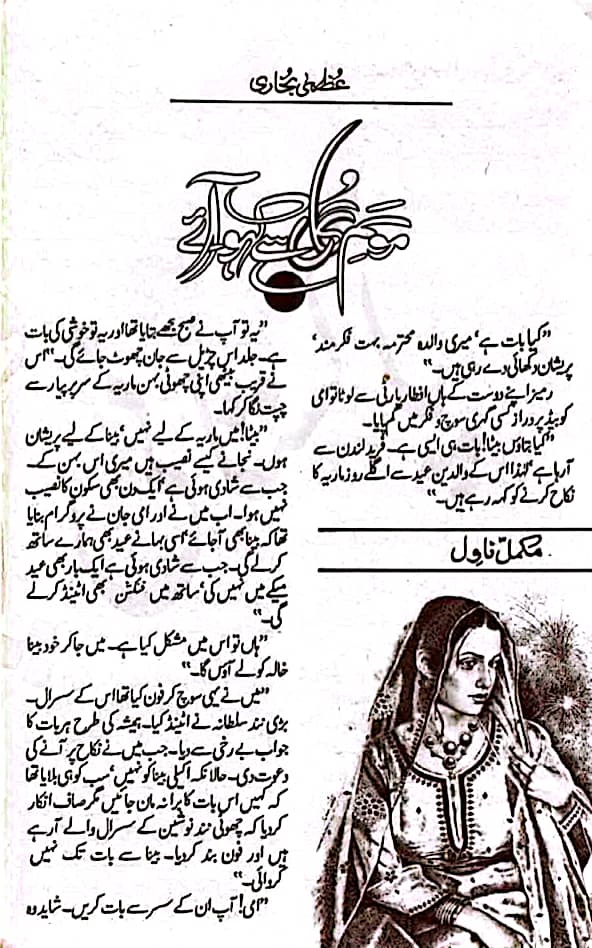 عُظمیٰ بخاری
موسم گل سے کہو آئے
"کیا بات ہے، میری والدہ محترمہ بہت فکر مند،
پریشان دکھائی دے رہی ہیں۔"
رمیز اپنے دوست کے ہاں افطار پارٹی سے لوٹا تو امی
کو بیڈ پر دراز کسی گہری سوچ و فکر میں گم پایا۔
"کیا بتاؤں بیٹا! بات ہی ایسی ہے۔ فرید لندن سے
آرہا ہے لہٰذا اس کے والدین عید سے اگلے روز ماریہ کا
نکاح کرنے کو کہہ رہے ہیں۔"
مکمل ناول
"یہ تو آپ نے صبح مجھے بتایا تھا اور یہ تو خوشی کی بات
ہے۔ جلد اس چڑیل سے جان چھوٹ جائے گی۔" اس
نے قریب بیٹھی اپنی چھوٹی بہن ماریہ کے سر پر پیار سے
چپت لگا کر کہا۔
"بیٹا! میں ماریہ کے لیے نہیں، بینا کے لیے پریشان
ہوں۔ نجانے کیسے نصیب ہیں میری اس بہن کے۔
جب سے شادی ہوئی ہے، ایک دن بھی سکون کا نصیب
نہیں ہوا۔ اب میں نے اور امی جان نے پروگرام بنایا
تھا کہ بینا بھی آجائے، اسی بہانے عید بھی ہمارے ساتھ
کرلے گی۔ جب سے شادی ہوئی ہے ایک بار بھی عید
میکے میں نہیں کی، ساتھ میں فنکشن بھی اٹینڈ کرلے
گی۔"
"ہاں تو اس میں مشکل کیا ہے۔ میں جا کر خود بینا
خالہ کو لے آؤں گا۔"
"میں نے یہی سوچ کر فون کیا تھا اس کے سسرال۔
بڑی نند سلطانہ نے اٹینڈ کیا۔ ہمیشہ کی طرح ہر بات کا
جواب بے رخی سے دیا۔ جب میں نے نکاح پر آنے کی
دعوت دی۔ حالانکہ اکیلی بینا کو نہیں، سب کو ہی بلایا تھا
کہ کہیں اس بات کا برا نہ مان جائیں مگر صاف انکار
کردیا کہ چھوٹی نند نوشین کے سسرال والے آرہے
ہیں اور فون بند کردیا۔ بینا سے بات تک نہیں
کروائی۔"
"امی! آپ ان کے سسر سے بات کریں۔ شاید وہ